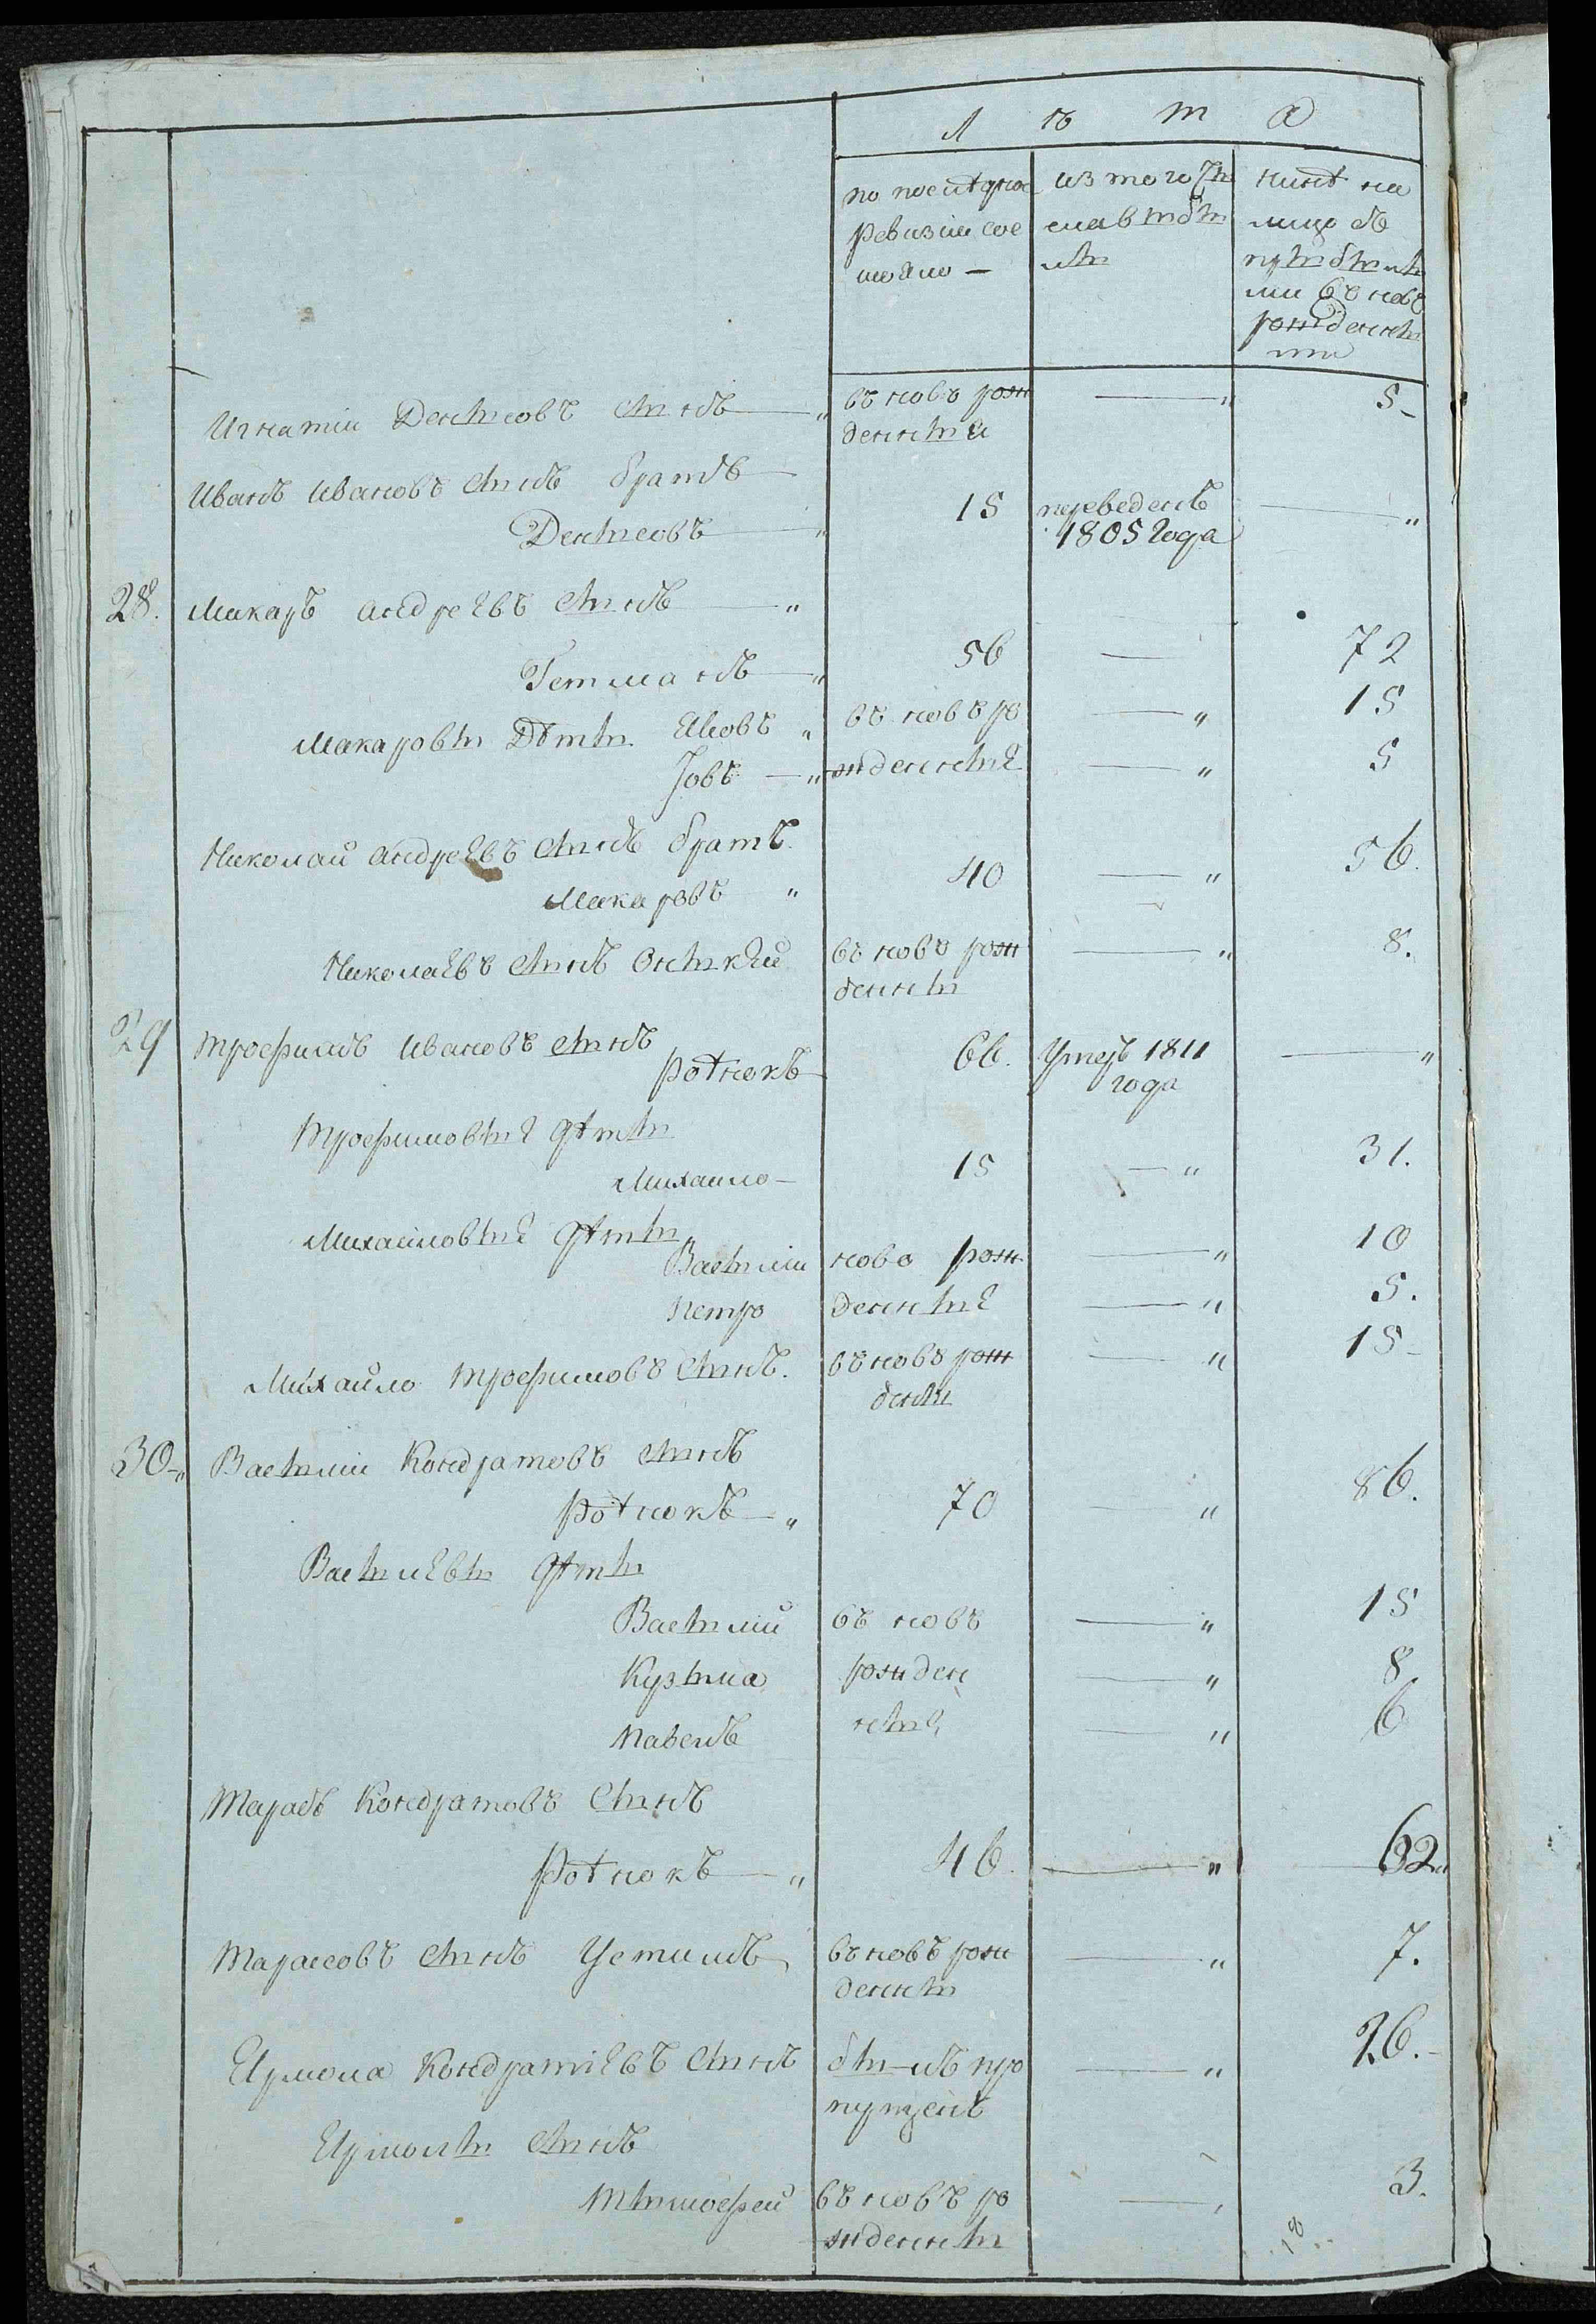 Лѣта
по последней ревизіи состояло — | из того числа выбыло | нынѣ на лицо съ прибылыми въ новорожденными
Игнатій Денысовъ сынъ — въ новъ рож | — „ | 5 –
денныи
Иванъ Ивановъ сынъ братъ
Денысовъ — „ 15 | переведенъ | — „
1805 года
28. Макаръ Андреевъ сынъ — „
Гетманъ — „ 56 | — | 72
Макаровы Дѣты Яковъ „ въ новъ ро | — „ | 15
Іовъ — „ жденные | — „ | 5
Николай Андреевъ сынъ братъ
Макаровъ „ 40 | — „ | 56.
Николаевъ сынъ Оныкѣй въ ново рож | — „ | 8.
денны
29 Трофимъ Ивановъ сынъ
Ротнокъ 66. | Умеръ 1811 | — „
года
Трофимовые дѣты
Михаило — 15 | — „ | 31.
Михаиловые дѣты
Васылии ново рож | — „ | 10
Петро денные | — „ | 5.
Михайло Трофимовъ сынъ. въ новъ рож | — „ | 15 –
денны
30 – „ Васылии Кондратовъ сынъ
Ротнокъ — „ 70 | „ | 86.
Васылевы дѣты
Васылий въ новъ | — „ | 15
Кузьма рожден | — „ | 8.
Павелъ ные, | — „ | 6
Тарасъ Кондратовъ сынъ
Ротнокъ — „ 46. | — „ | 62 „
Тарасовъ сынъ Устимъ въ новъ рож | — „ | 7.
денны
Ермола Кондратіевъ сынъ былъ про | — „ | 26. –
пущенъ
Ермолы сынъ
Тымофей въ новъ ро | — , | 3.
жденны
18